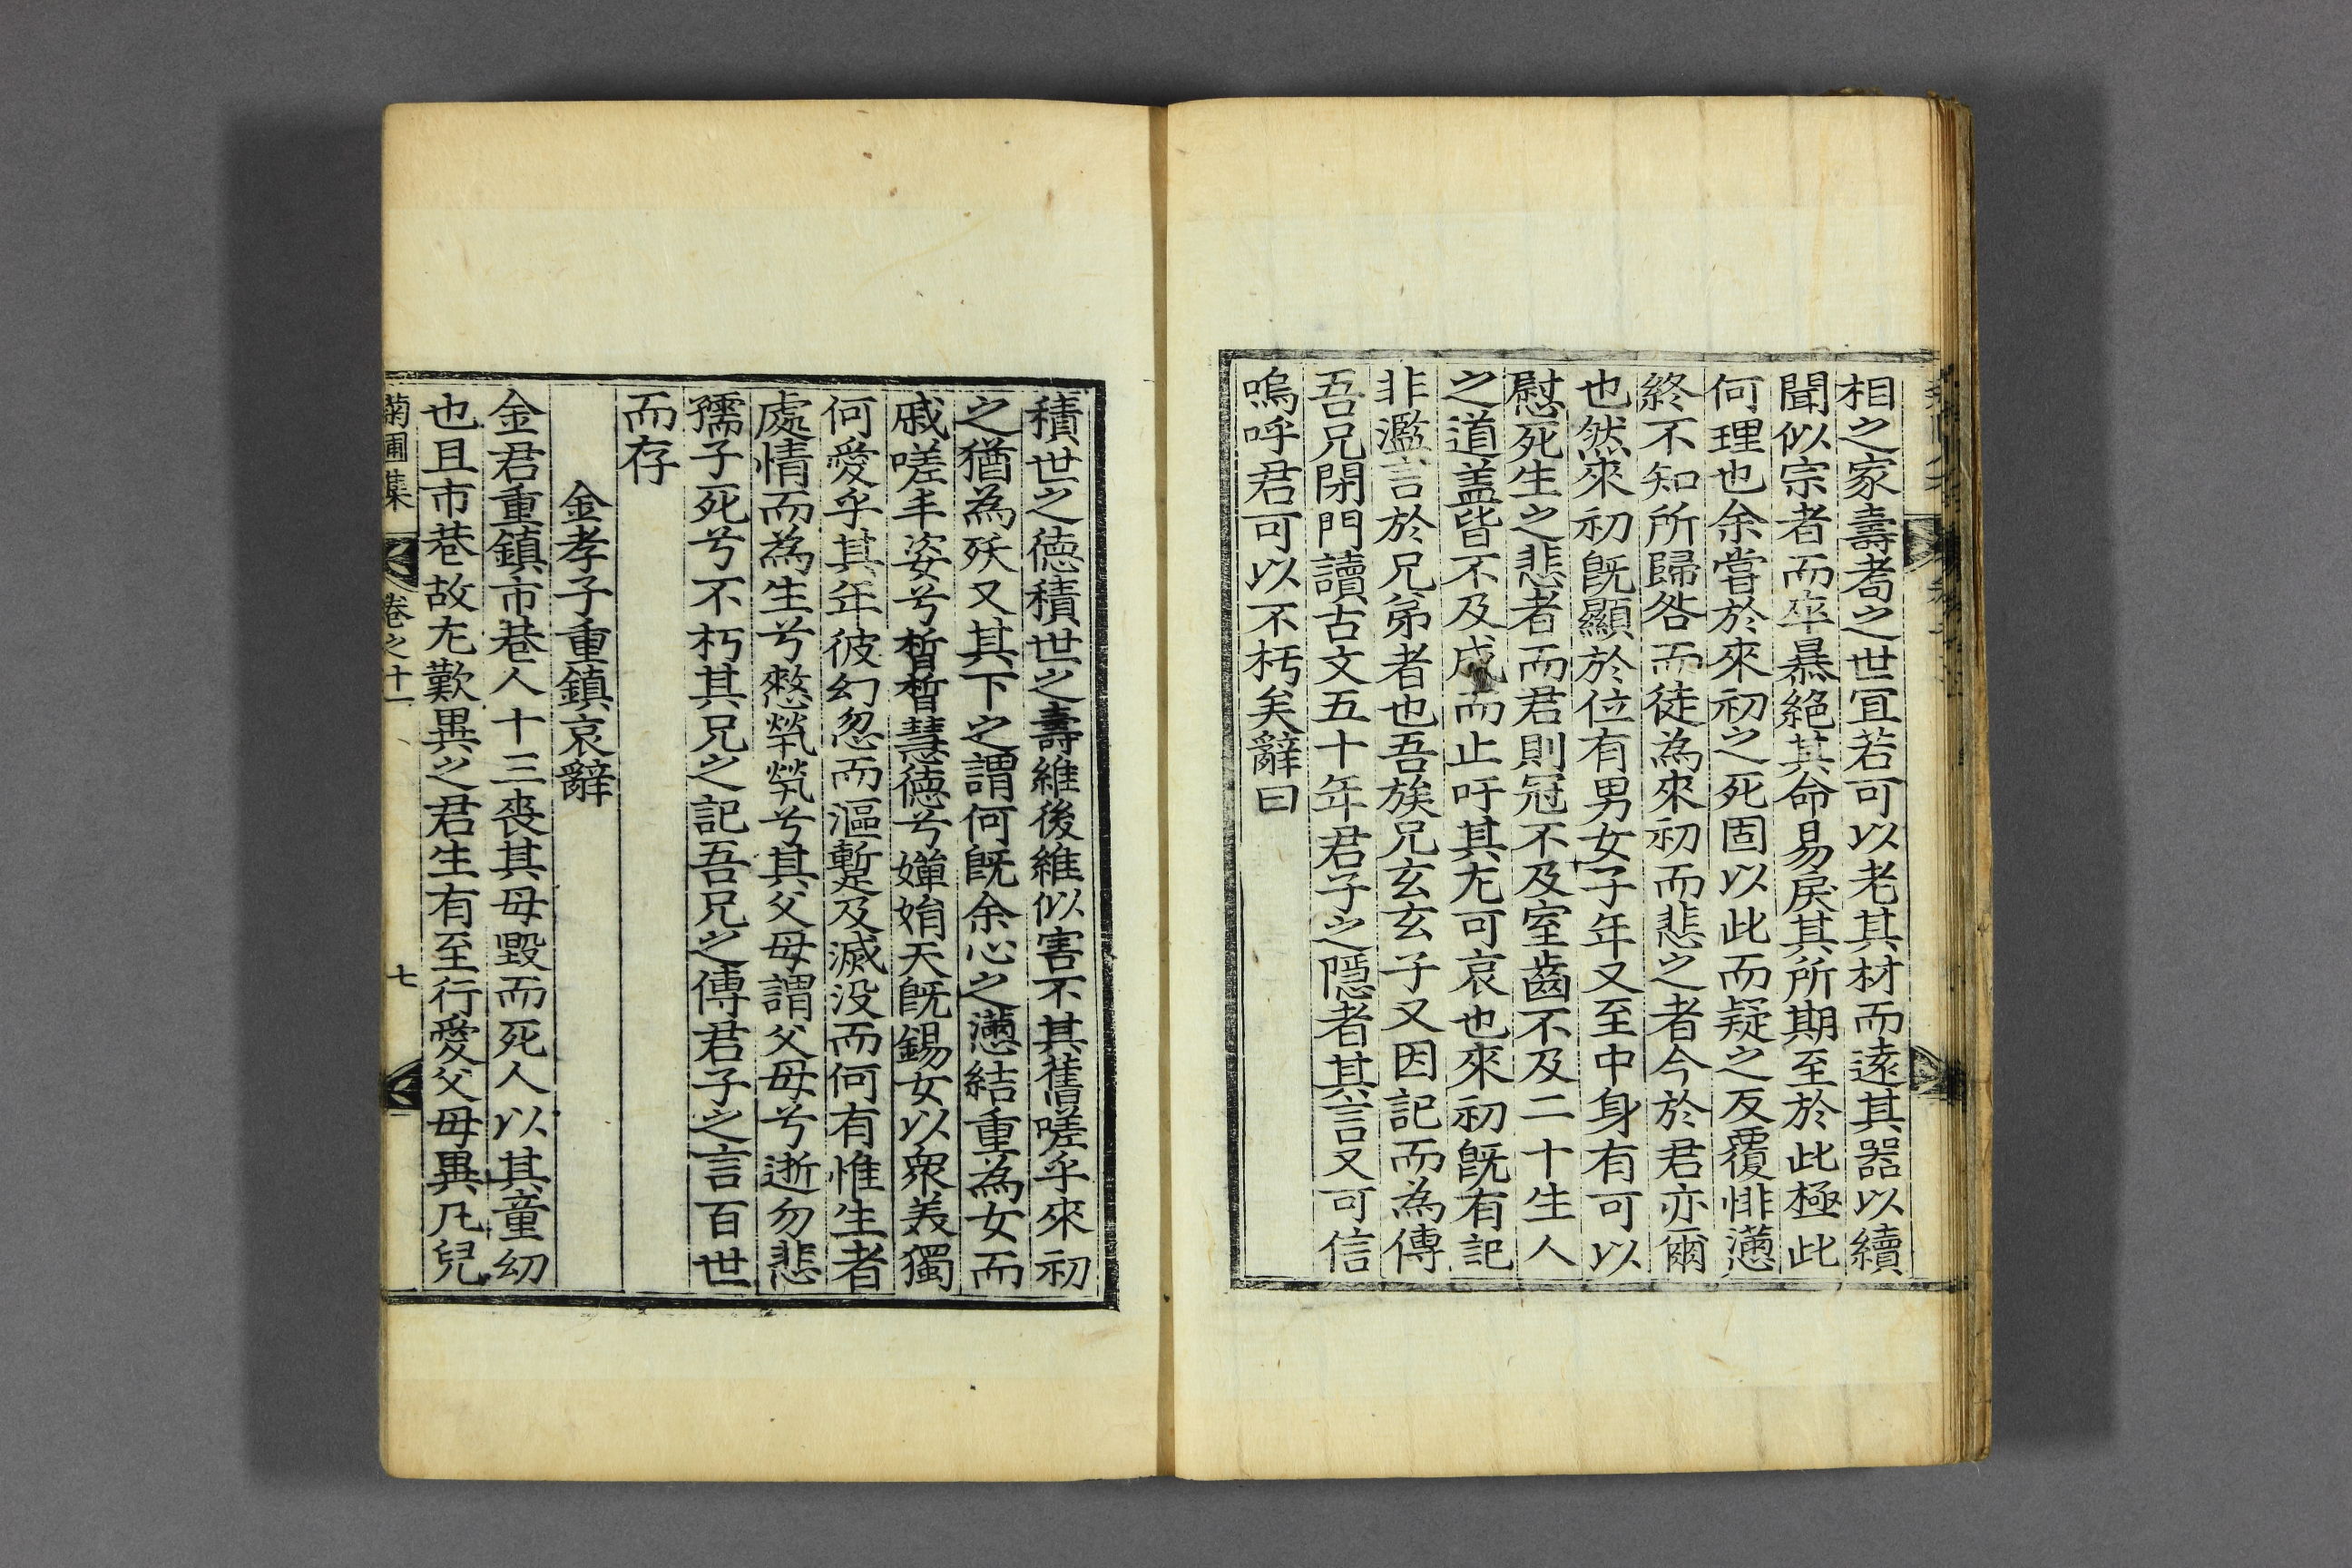 相之家壽耈之世冝若可以老其材而遠其器以續
聞似宗者而卒暴絕其命易戾其所期至於此極此
何理也余甞於來初之死固以此而疑之反覆悱懣
終不知所歸咎而徒為來初而悲之者今於君亦爾
也然來初旣顯於位有男女子年又至中身有可以
慰死生之悲者而君則冠不及室齒不及二十生人
之道盖皆不及成而止吁其尤可哀也來初旣有記
非濫言於兄弟者也吾族兄玄玄子又因記而為傳
吾兄閉門讀古文五十年君子之隱者其言又可信
嗚呼君可以不朽矣辭曰
積世之德積世之壽維後維似害不其舊嗟乎來初
之猶為殀又其下之謂何旣余心之懣結重為女而
戚嗟丰姿兮晳晳慧德兮嬋娟天旣錫女以衆美獨
何愛乎其年彼幻忽而漚蹔及滅没而何有惟生者
處情而為生兮憖煢煢兮其父母謂父母兮逝勿悲
孺子死兮不朽其兄之記吾兄之傳君子之言百世
而存
金孝子重鎮哀辭
金君重鎮市巷人十三喪其母毀而死人以其童幼
也且市巷故尤歎異之君生有至行愛父母異凡兒
菊圃集 卷之十一 七